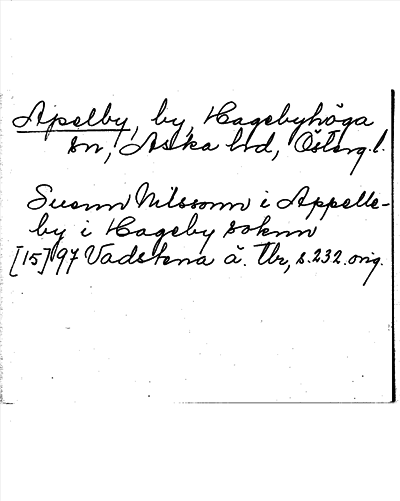 Apelby, by, Hagebyhöga
sn, Aska hd, Österg. l.
Suenn Nilssonn i Appelle-
by i Hageby soknn
[15]97 Vadstena ä. Tb, s. 232. orig.